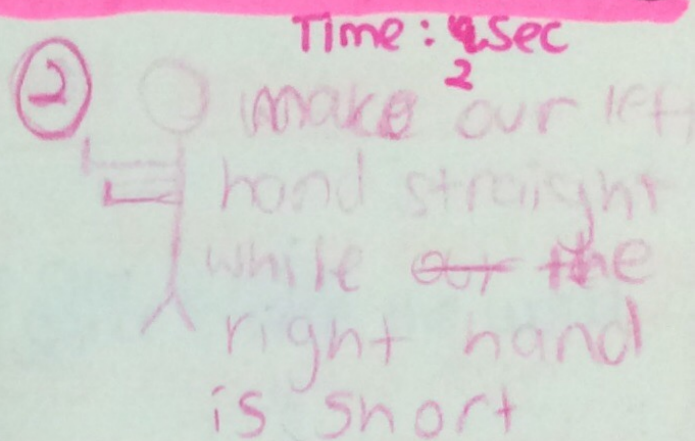 Time: 2 sec
2 make our left
hand straight
while our the
right hand
is short